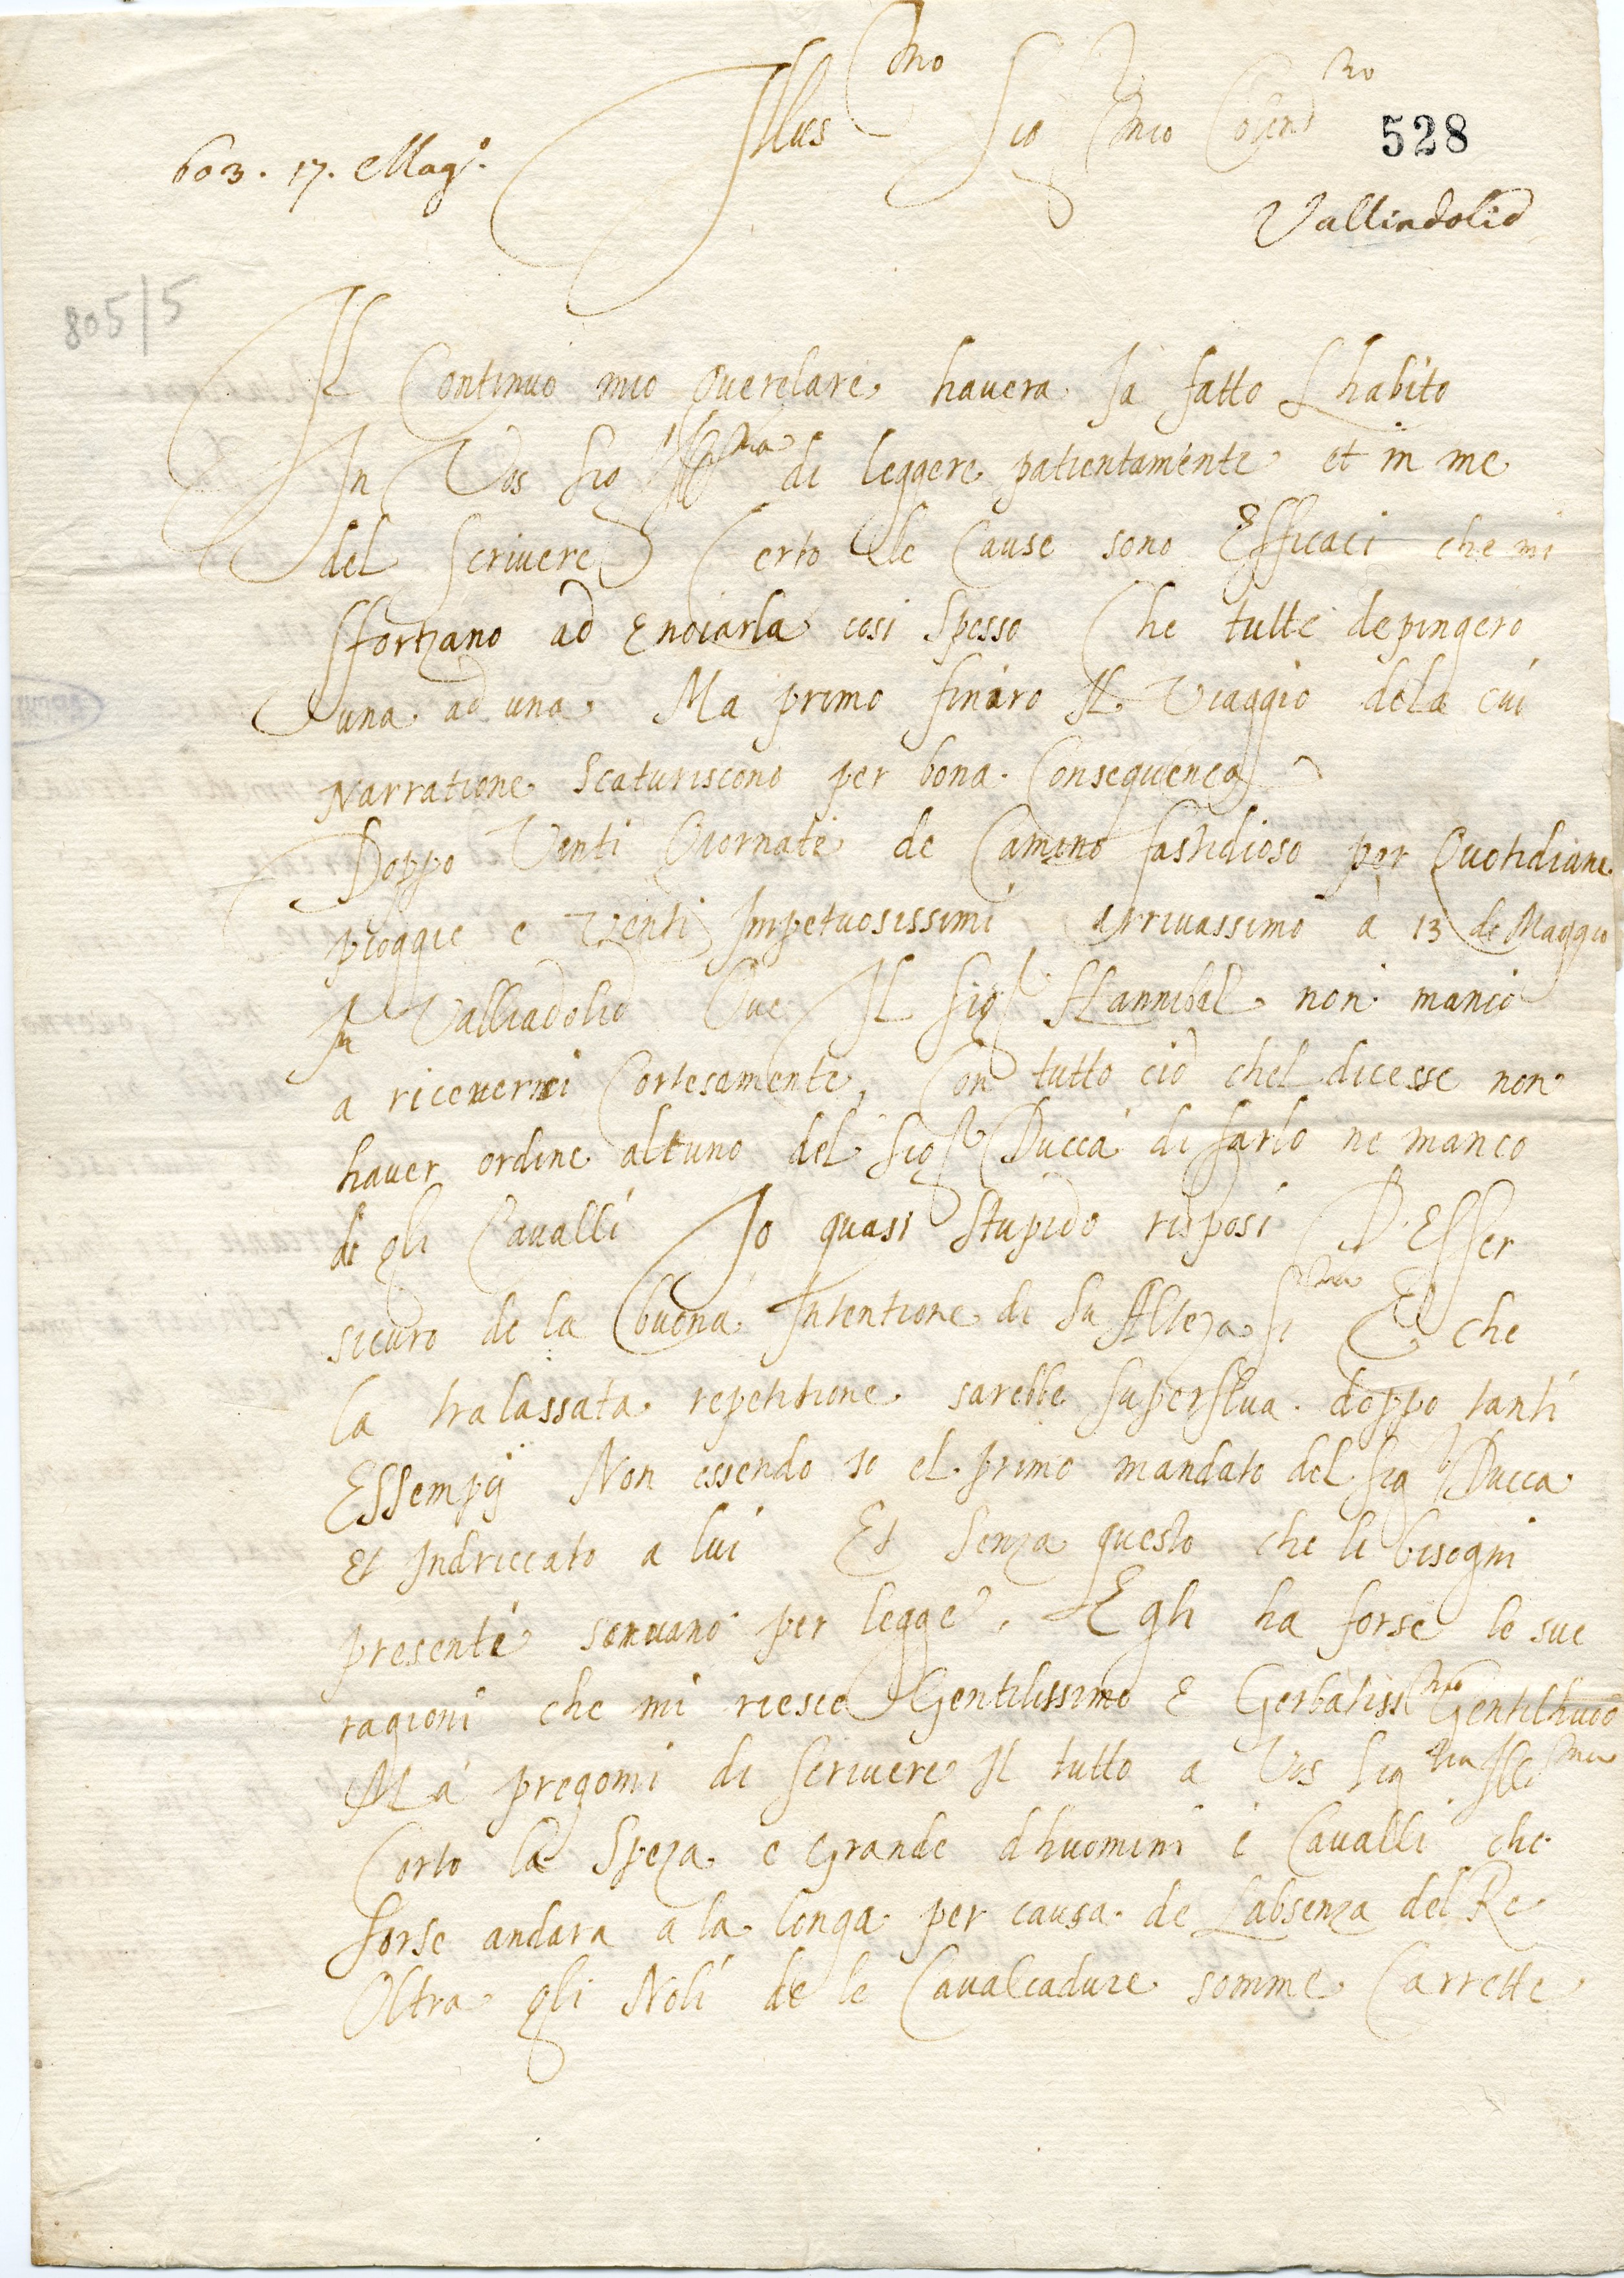 Illus mo Sig mio Col.end mo
528
603. 17. Magº.
Valliadolid
805/5
Il Continuo mio Querelare havera Ja fatto L habito
In Vos Sig Ill ma di leggere patientamente et in me
del Scrivere Certo le Cause sono Efficaci che mi
Sfortzano ad Enoiarla cosi spesso Che tutte depingero
una ad una. Ma primo finiro Il Viaggio dela cui
Narratione scaturiscono per bona Consequenca
Doppo Venti Giornate de Camino fastidioso per Quotidiane
pioggie e Venti Impetuosissimi arrivassimo a 13 di Maggio
In Valliadolid Ove Il Sigr Hannibal non manco
a ricevermi Cortesamente, Con tutto cio chel dicesse non
haver ordine altuno del Sigr Ducca di farlo ne manco
di gli Cavalli Io quasi stupido risposi D'Esser
sicuro de la buona Intentione di Su Alteza Sma Et che
la tralassata repetitione sarebbe superflua doppo tanti
Essempij Non essendo io el primo mandato del Sigr Ducca
et Indriccato a lui Et senza questo che li bisogni
presenti servano per legge. Egli ha forse le sue
ragioni che mi riesce Gentilissimo e Gerbatiss mo Gentilhuoo
Ma pregomi di scrivere Il tutto a Vos Sig ria Ill ma
Certo la Speza e Grande d huomini e Cavalli che
forse andara a la longa per causa de Labsenza del Re
Oltra gli Noli de le Cavalcadure somme Carrette